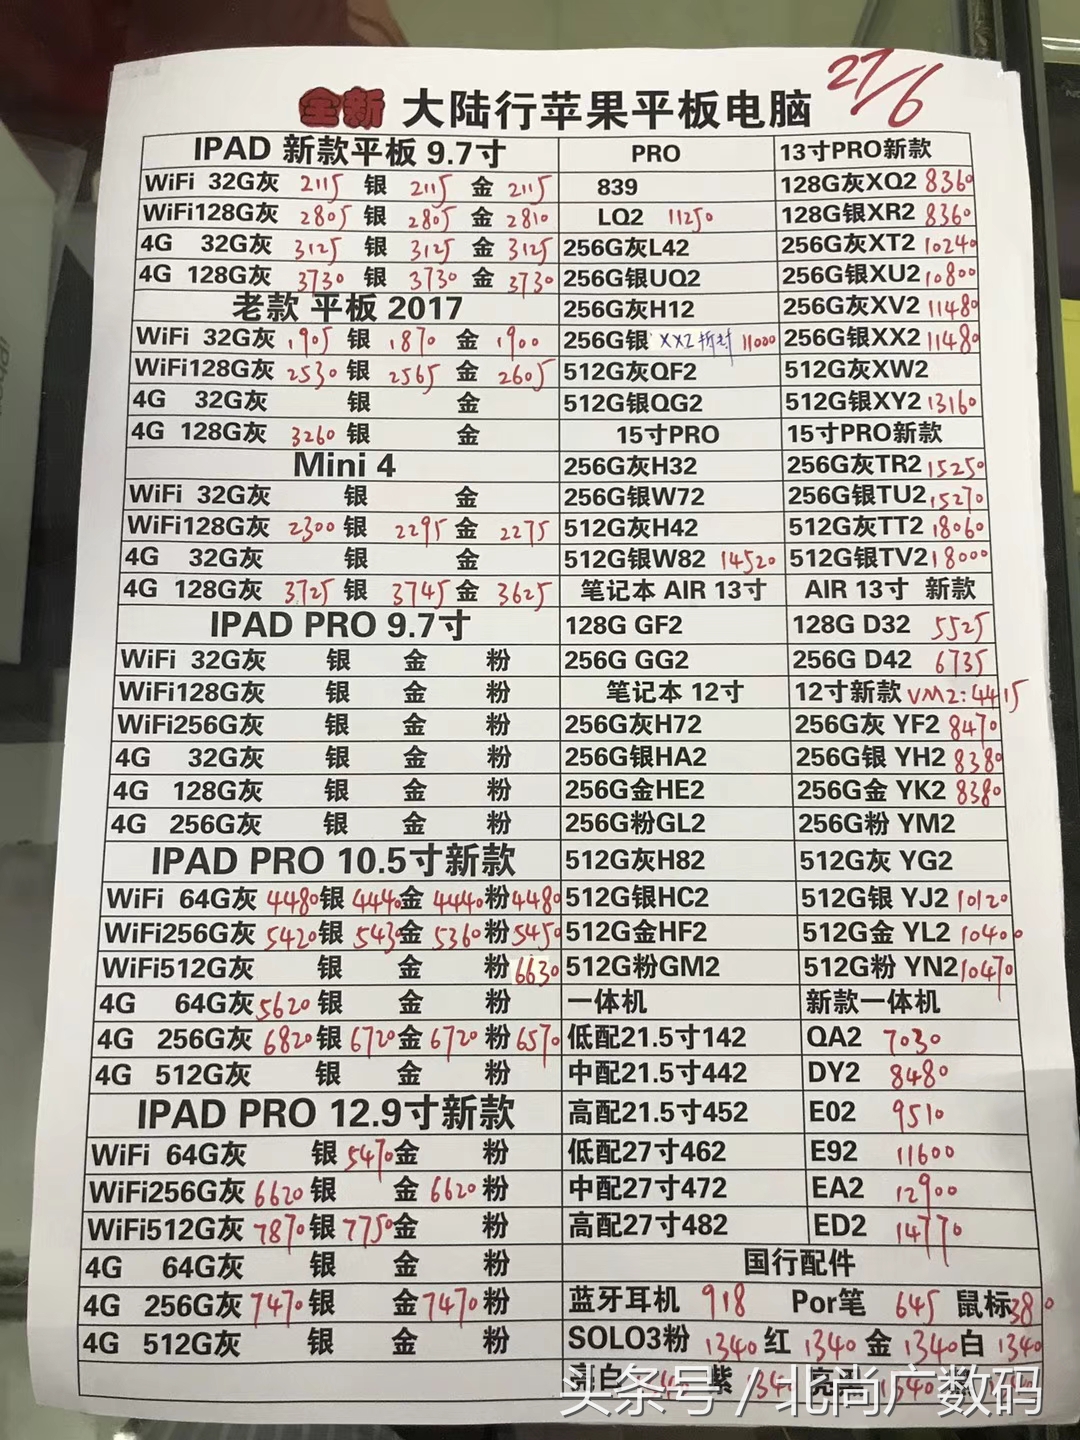 27/6
全新 大陆行苹果平板电脑
IPAD 新款平板 9.7寸
WiFi 32G灰 2115 银 2115 金 2115
WiFi128G灰 2805 银 2805 金 2810
4G 32G灰 3125 银 3125 金 3125
4G 128G灰 3730 银 3730 金 3730
老款 平板 2017
WiFi 32G灰 1905 银 1870 金 1900
WiFi128G灰 2530 银 2565 金 2605
4G 32G灰 银 金
4G 128G灰 3260 银 金
Mini 4
WiFi 32G灰 银 金
WiFi128G灰 2300 银 2295 金 2275
4G 32G灰 银 金
4G 128G灰 3725 银 3745 金 3625
IPAD PRO 9.7寸
WiFi 32G灰 银 金 粉
WiFi128G灰 银 金 粉
WiFi256G灰 银 金 粉
4G 32G灰 银 金 粉
4G 128G灰 银 金 粉
4G 256G灰 银 金 粉
IPAD PRO 10.5寸新款
WiFi 64G灰 4480 银 4440 金 4440 粉 4480
WiFi256G灰 5420 银 5430 金 5360 粉 5450
WiFi512G灰 银 金 粉 6630
4G 64G灰 5620 银 金 粉
4G 256G灰 6820 银 6720 金 6720 粉 6570
4G 512G灰 银 金 粉
IPAD PRO 12.9寸新款
WiFi 64G灰 银 5470 金 粉
WiFi256G灰 6620 银 金 6620 粉
WiFi512G灰 7870 银 7750 金 粉
4G 64G灰 银 金 粉
4G 256G灰 7470 银 金 7470 粉
4G 512G灰 银 金 粉
PRO
839
LQ2 11250
256G灰L42
256G银UQ2
256G灰H12
256G银 XX2拆封 11000
512G灰QF2
512G银QG2
15寸PRO
256G灰H32
256G银W72
512G灰H42
512G银W82 14520
笔记本 AIR 13寸
128G GF2
256G GG2
笔记本 12寸
256G灰H72
256G银HA2
256G金HE2
256G粉GL2
512G灰H82
512G银HC2
512G金HF2
512G粉GM2
一体机
低配21.5寸142
中配21.5寸442
高配21.5寸452
低配27寸462
中配27寸472
高配27寸482
13寸PRO新款
128G灰XQ2 8360
128G银XR2 8360
256G灰XT2 10240
256G银XU2 10800
256G灰XV2 11480
256G银XX2 11480
512G灰XW2
512G银XY2 13160
15寸PRO新款
256G灰TR2 15250
256G银TU2 15270
512G灰TT2 18060
512G银TV2 18000
AIR 13寸 新款
128G D32 5525
256G D42 6735
12寸新款 VM2:4415
256G灰 YF2 8470
256G银 YH2 8380
256G金 YK2 8380
256G粉 YM2
512G灰 YG2
512G银 YJ2 10120
512G金 YL2 10400
512G粉 YN2 10470
新款一体机
QA2 7030
DY2 8480
E02 9510
E92 11600
EA2 12900
ED2 14770
国行配件
蓝牙耳机 918 Por笔 645 鼠标 380
SOLO3粉 1340 红 1340 金 1340 白 1340
亮白 紫 1340
头条号 / 北尚广数码